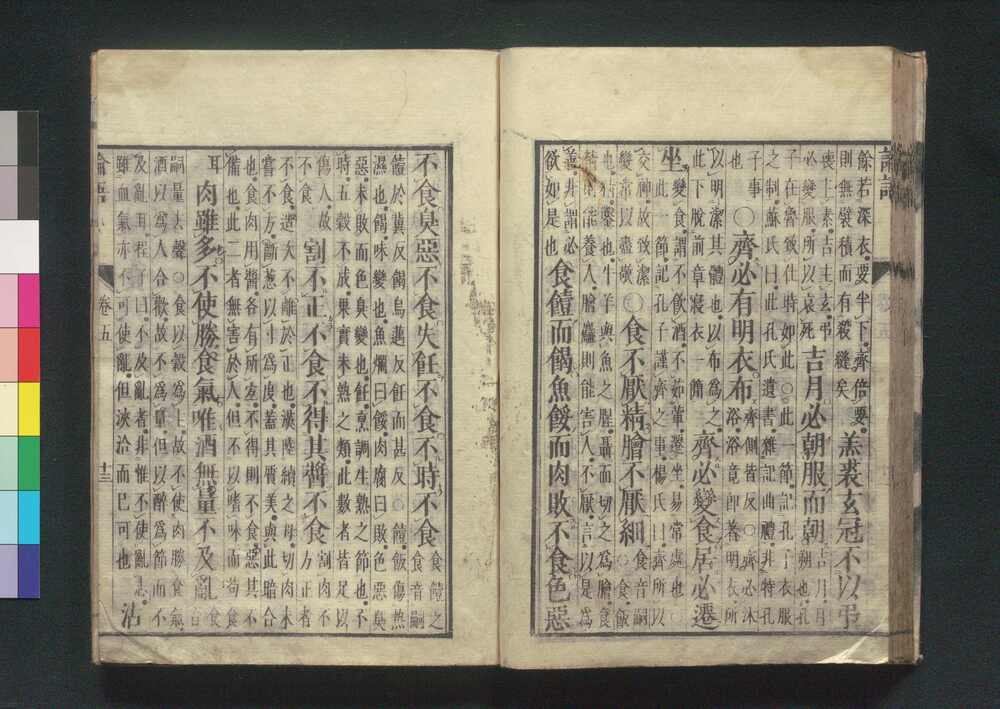 餘若深衣要半下齊倍要
則無襞積而有殺縫矣
羔裘玄冠不以弔
喪主素吉主玄弔
必變服所以哀死
吉月必朝服而朝
吉月月
朔也孔
子在魯致仕時如此○此一節記孔子衣服
之制蘇氏曰此孔氏遺書雜記曲禮非特孔
子事
也
○齊必有明衣布
齊側皆反○齊必沐
浴浴竟即著明衣所
以明潔其體也以布為之
此下脫前章寢衣一簡
齊必變食居必遷
坐
變食謂不飲酒不茹葷遷坐易常處也○
此一節記孔子謹齊之事楊氏曰齊所以
交神故致潔
變常以盡敬
○食不厭精膾不厭細
食音嗣
○食飯
也精鑿也牛羊與魚之腥聶而切之為膾食
精則能養人膾麤則能害人不厭言以是為
善非謂必
欲如是也
食饐而餲魚餒而肉敗不食色惡
不食臭惡不食失飪不食不時不食
食饐之
食音嗣
饐於冀反餲烏邁反飪而甚反○饐飯傷熱
濕也餲味變也魚爛曰餒肉腐曰敗色惡臭
惡未敗而色臭變也飪烹調生熟之節也不
時五穀不成果實未熟之類此數者皆足以
傷人故
不食
割不正不食不得其醬不食
割肉不
方正者
不食造次不離於正也漢陸續之母切肉未
嘗不方斷葱以寸為度蓋其質美與此暗合
也食肉用醬各有所宜不得則不食惡其不
備也此二者無害於人但不以嗜味而苟食
耳
肉雖多不使勝食氣唯酒無量不及亂
食
音
嗣量去聲○食以穀為主故不使肉勝食氣
酒以為人合歡故不為量但以醉為節而不
及亂耳程子曰不及亂者非惟不使亂志
雖血氣亦不可使亂但浹洽而已可也
沽
論語
卷五
十三